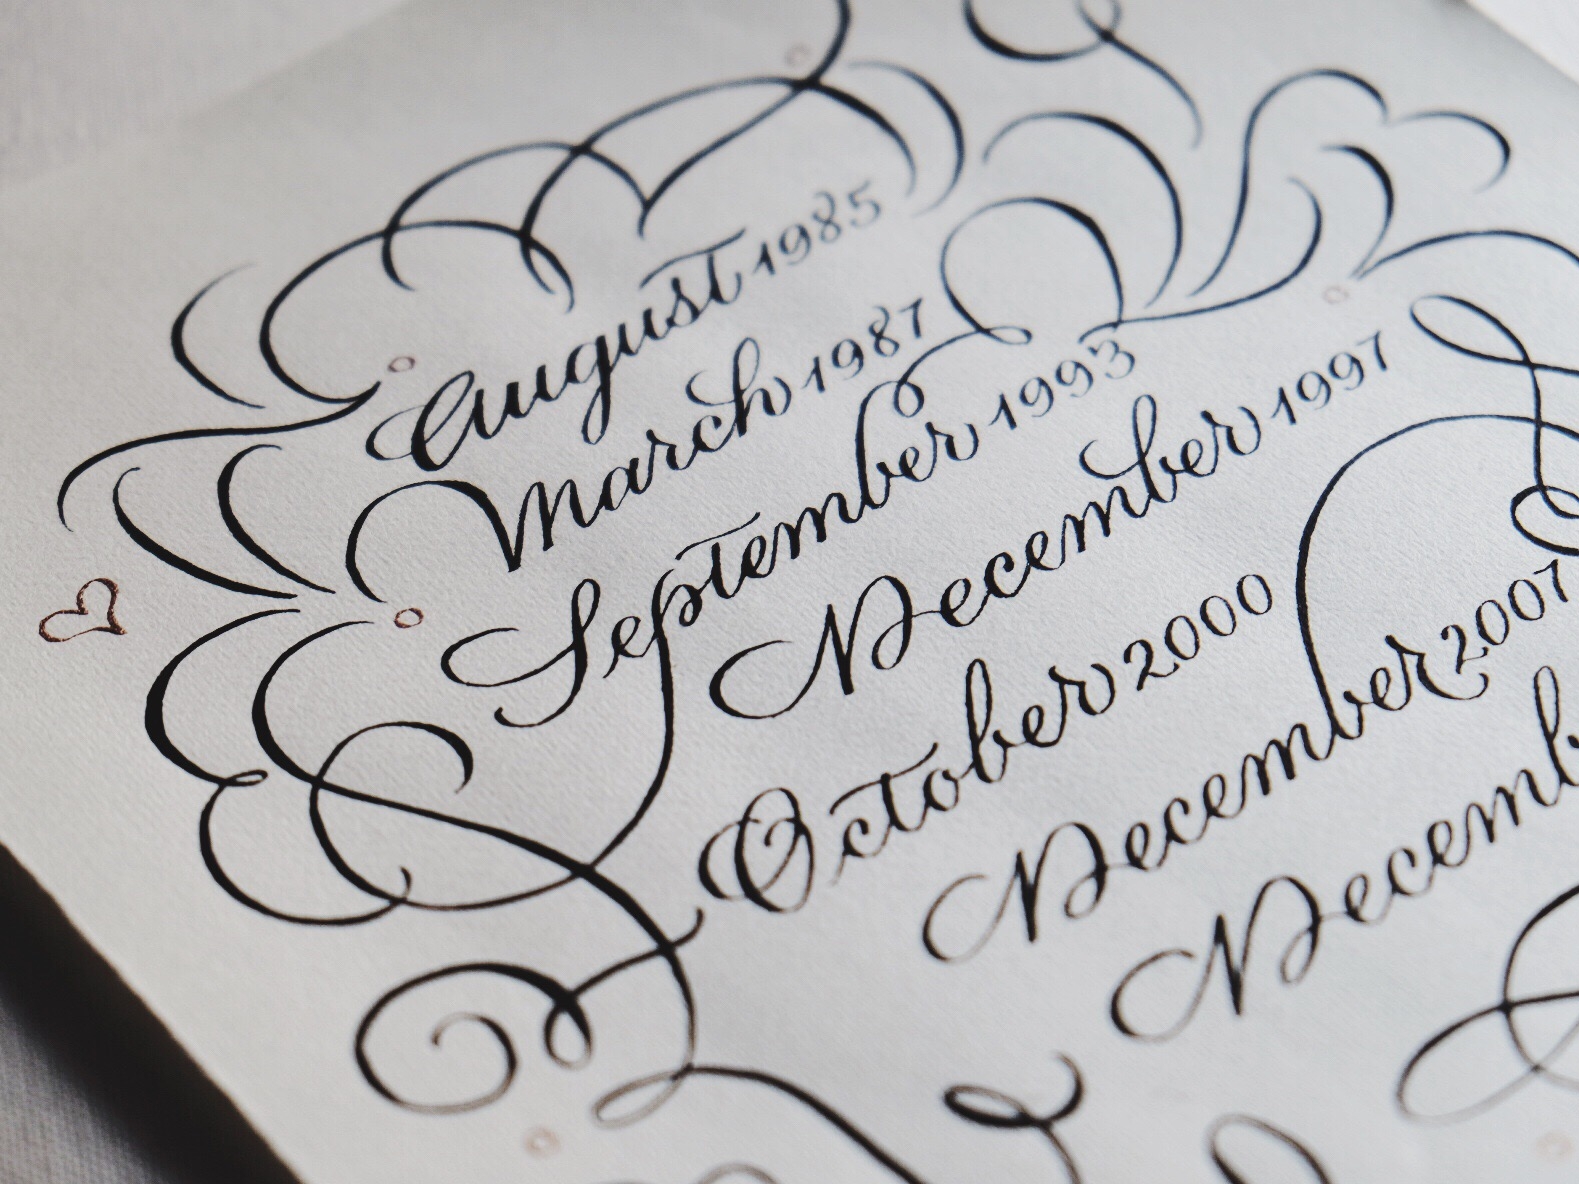 August 1985
March 1987
September 1993
December 1997
October 2000
December 2007